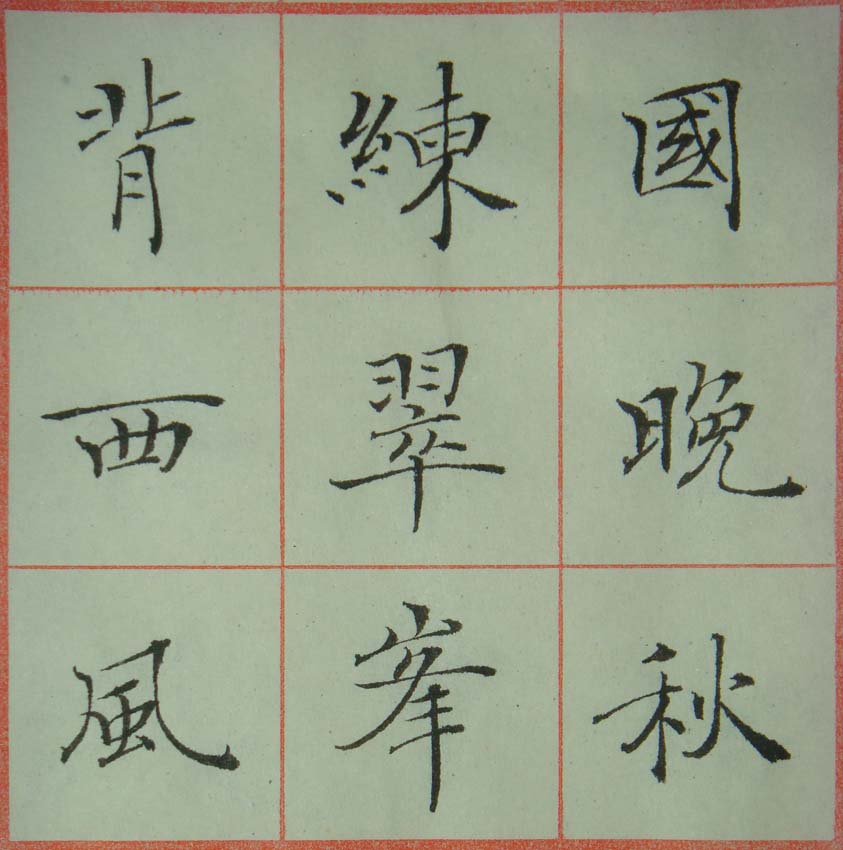 國晚秋
練翠峯
背西風